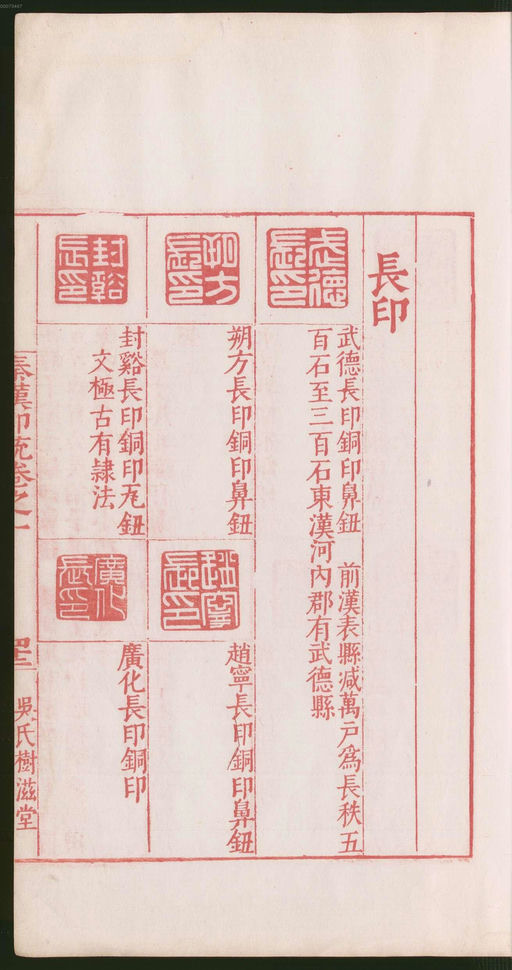 長印
武德長印
武德長印銅印鼻鈕　前漢表縣减萬戶爲長秩五
百石至三百石東漢河內郡有武德縣
朔方長印
朔方長印銅印鼻鈕
趙寧長印
趙寧長印銅印鼻鈕
封谿長印
封谿長印銅印瓦鈕
文極古有隷法
廣化長印
廣化長印銅印
秦漢印統卷之一
吳氏樹滋堂
00073447